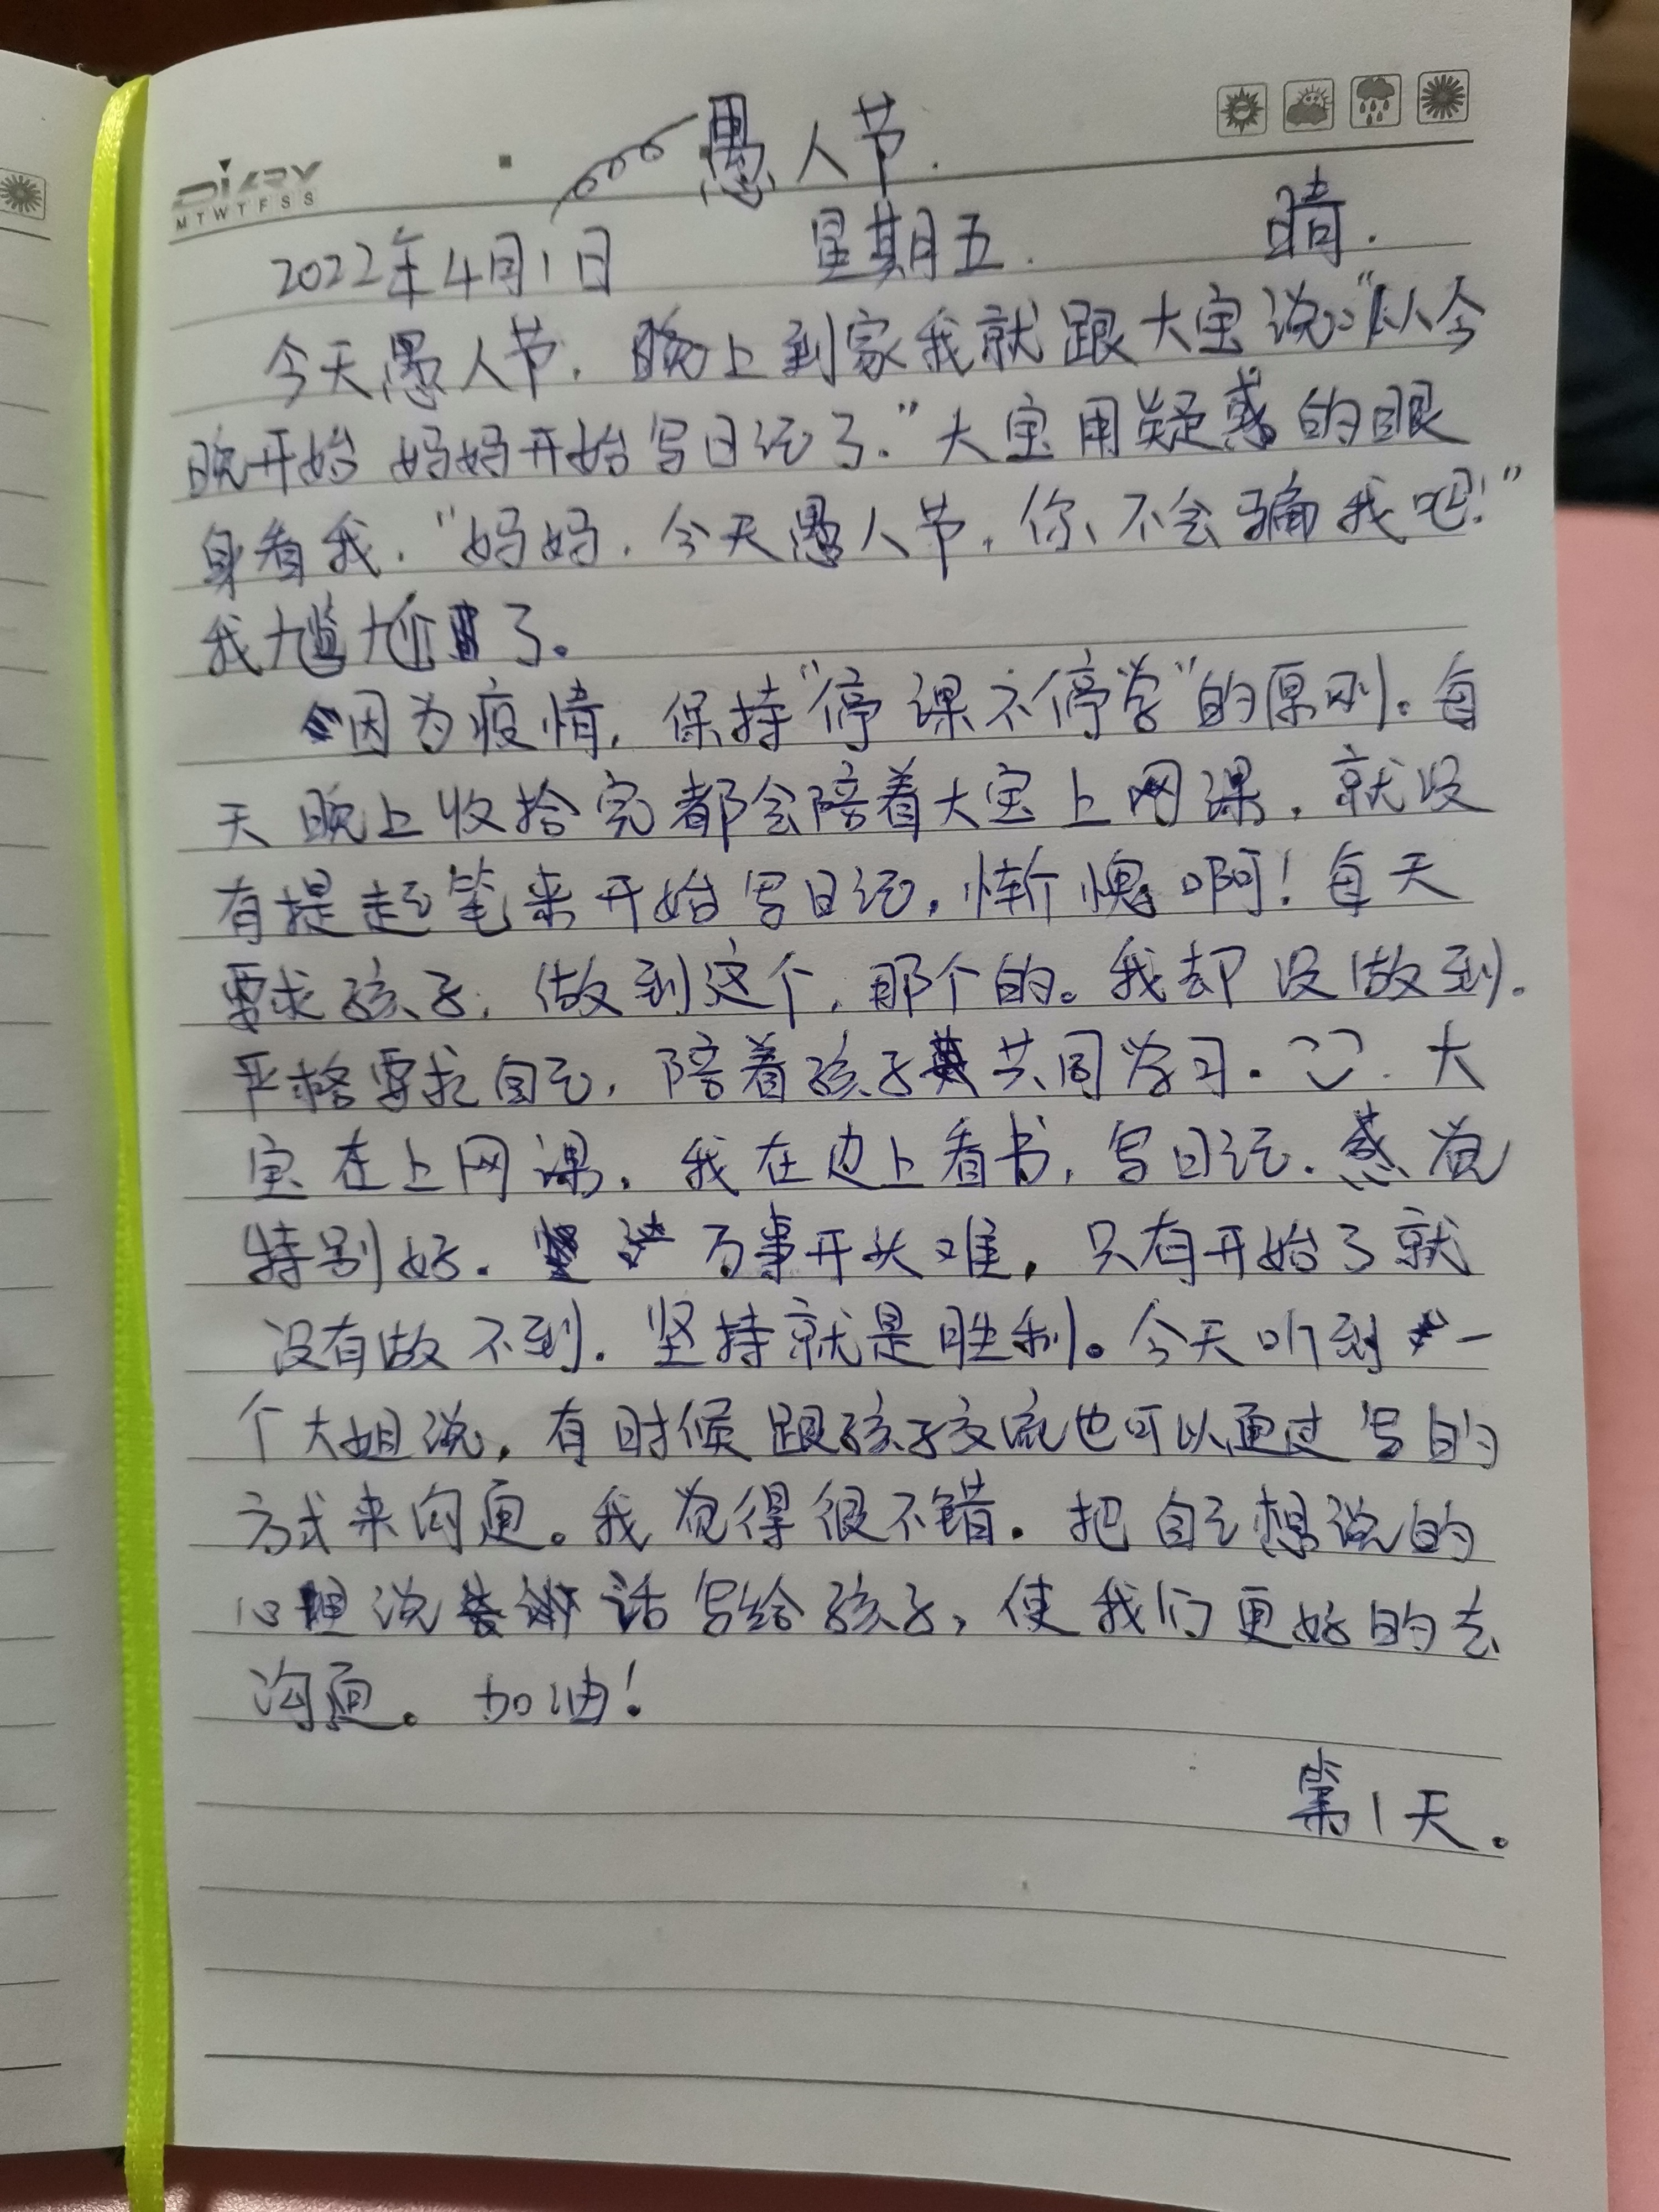 愚人节.
DIARY
M T W T F S S
2022年4月1日 星期五. 晴.
今天愚人节, 晚上到家我就跟大宝说:"从今
晚开始 妈妈开始写日记了."大宝用疑惑的眼
身看我."妈妈,今天愚人节,你不会骗我吧!"
我尴尬了。
因为疫情,保持"停课不停学"的原则。每
天晚上收拾完都会陪着大宝上网课,就没
有提起笔来开始写日记,惭愧啊!每天
要求孩子,做到这个,那个的。我却没做到.
严格要求自己,陪着孩子共同学习. 大
宝在上网课,我在边上看书,写日记.感觉
特别好. 万事开头难,只有开始了就
没有做不到.坚持就是胜利。今天听到一
个大姐说,有时候跟孩子交流也可以通过写的
方式来沟通。我觉得很不错.把自己想说的
心里说话写给孩子,使我们更好的去
沟通。加油!
第1天。